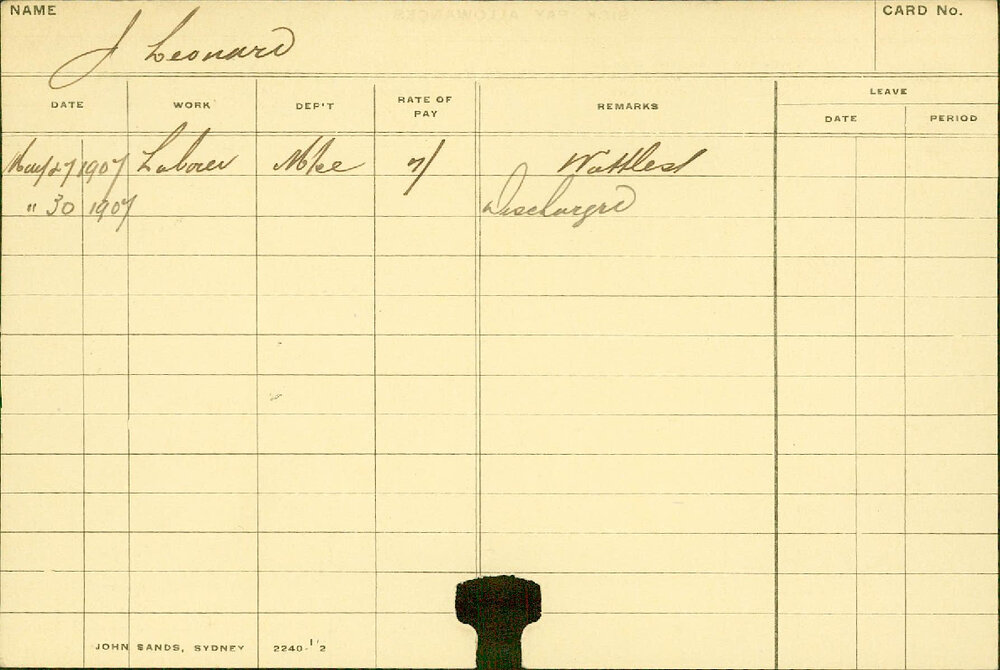 NAME
CARD No.
J Leonard
DATE WORK DEP'T RATE OF PAY REMARKS LEAVE
DATE PERIOD
May 27 1907 Labour Mtce 7/ Wattlest
" 30 1907 Discharged
JOHN SANDS, SYDNEY 2240-1/2